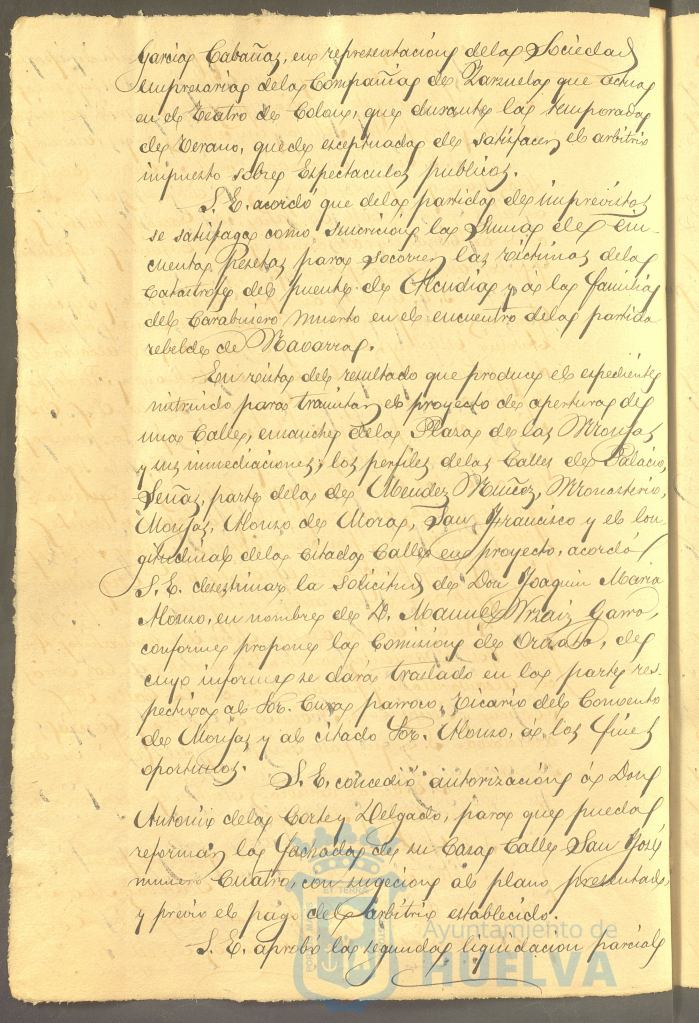 Garcia Cabañas, en representacion de la Sociedad
empresaria de la Compañia de Zarzuela que actua
en el Teatro de Colon, que durante la temporada
de Verano, quede exceptuada de satisfacer el arbitrio
impuesto sobre Espectaculos publicos.
S. E. acordó que de la partida de imprevistos
se satisfaga como suscricion la suma de Cin-
cuenta Pesetas para socorrer las victimas de la
Catastrofe del puente de Alcudia y á la familia
del Carabinero muerto en el encuentro de la partida
rebelde de Navarra.
En vista del resultado que produce el espediente
instruido para tramitar el proyecto de apertura de
una Calle, ensanche de la Plaza de las Monjas
y sus inmediaciones, los perfiles de las Calles de Palacio,
Señas, parte de la de Mendez Nuñez, Monasterio,
Monjas, Alonso de Mora, San Francisco y el lon-
gitudinal de la citada Calle en proyecto, acordó
S. E. desestimar la solicitud de Don Joaquin Maria
Alonso, en nombre de D. Manuel Garro,
conforme propone la Comision de Ornato, de
cuyo informe se dará traslado en la parte res-
pectiva al Sor. Cura parroco, Vicario del Convento
de Monjas y al citado Sor. Alonso, á los fines
oportunos. S. E. concedió autorizacion á Don
Antonio de la Corte y Delgado, para que pueda
reformar la fachada de su Casa Calle San José
numero Cuatro, con sugecion al plano presentado,
y previo el pago del arbitrio establecido.
S. E. aprobó la segunda liquidacion parcial
Ayuntamiento de
HUELVA